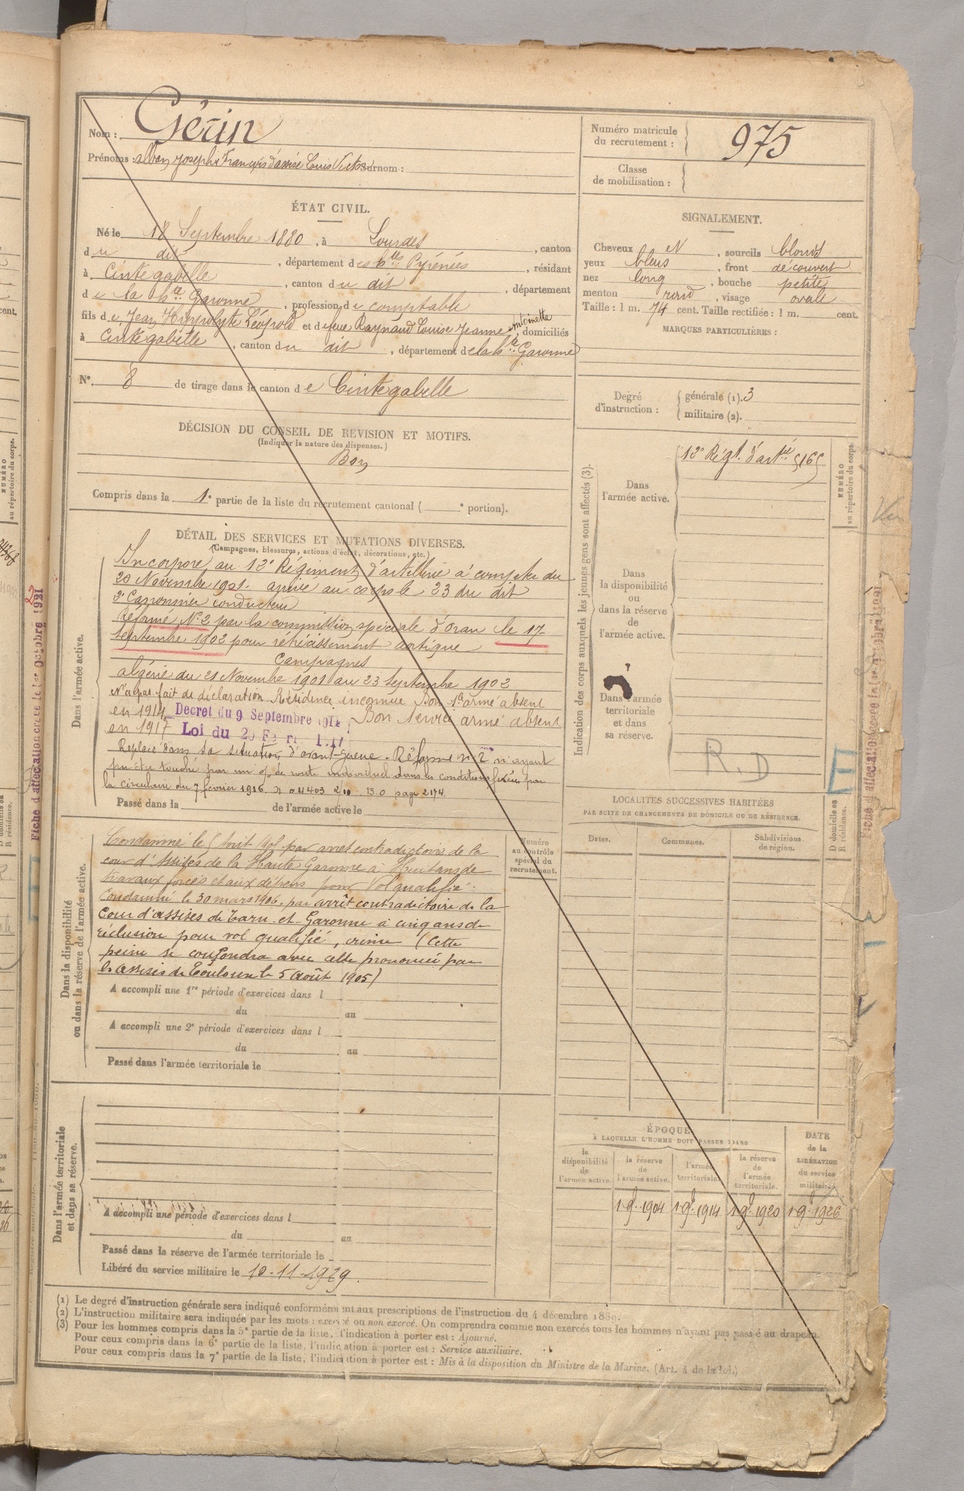 Nom : Gérin
Prénoms : Alban Joseph François d'assise Louis Victor Surnom :
Numéro matricule du recrutement : 975
Classe de mobilisation :
ÉTAT CIVIL.
Né le 18 Septembre 1880, à Lourdes, canton
du dit, département des htes Pyrénées, résidant
à Cintegabelle, canton du dit, département
de la hte Garonne, profession de comptable
fils de Jean Hippolyte Léopold et de feue Raynaud Louise Jeanne antoinette, domiciliés
à Cintegabelle, canton du dit, département de la hte Garonne
N° 8 de tirage dans le canton de Cintegabelle
SIGNALEMENT.
Cheveux N, sourcils blonds
yeux bleus, front découvert
nez long, bouche petite
menton rond, visage ovale
Taille : 1 m. 74 cent. Taille rectifiée : 1 m. cent.
MARQUES PARTICULIÈRES :
Degré d'instruction : générale (1). 3
militaire (2).
DÉCISION DU CONSEIL DE REVISION ET MOTIFS.
(Indiquer la nature des dispenses.)
Bon
Compris dans la 1e partie de la liste du recrutement cantonal ( e portion).
DÉTAIL DES SERVICES ET MUTATIONS DIVERSES.
(Campagnes, blessures, actions d'éclat, décorations, etc.)
Dans l'armée active.
Incorporé au 12e Régiment d'artillerie à compter du
20 Novembre 1901. arrivé au corps le 23 du dit
2e Cannonier conducteur
Réformé N°2 par la commission spéciale d'Oran le 17
Septembre 1902 pour rétrécissement aortique
Campagnes
algérie du 21 Novembre 1901 au 23 Septembre 1902
N'ayant fait de déclaration Résidence inconnue Bon sce armé absent
en 1914 Décret du 9 Septembre 1914 Bon service armé absent
en 1917 Loi du 20 Février 1917
Replacé dans sa situation d'avant-guerre. Réformé n° 2 n'ayant
pu être touché par un o/ de route individuel dans les conditions fixées par
la circulaire du 7 février 1916 n° 4403 2/10 B O page 2194.
Passé dans la de l'armée active le
Dans la disponibilité ou dans la réserve de l'armée active.
Condamné le 5 août 1905 par arrêt contradictoire de la
cour d'Assises de la Haute Garonne à Huit ans de
travaux forcés et aux dépens pour Vol qualifié.
Condamné le 30 mars 1906 par arrêt contradictoire de la
Cour d'assises de Tarn et Garonne à cinq ans de
réclusion pour vol qualifié, crime (Cette
peine se confondra avec celle prononcée par
les Assises de Toulouse le 5 Août 1905)
A accompli une 1re période d'exercices dans l
du au
A accompli une 2e période d'exercices dans l
du au
Passé dans l'armée territoriale le
Dans l'armée territoriale et dans sa réserve.
A accompli une période d'exercices dans l
du au
Passé dans la réserve de l'armée territoriale le
Libéré du service militaire le 10-11-1929.
Indication des corps auxquels les jeunes gens sont affectés (3).
Dans l'armée active. 12e Régt. d'artie 5165
Dans la disponibilité ou dans la réserve de l'armée active.
Dans l'armée territoriale et dans sa réserve.
RD
NUMÉRO au répertoire du corps.
LOCALITÉS SUCCESSIVES HABITÉES
PAR SUITE DE CHANGEMENTS DE DOMICILE OU DE RÉSIDENCE.
Numéro au contrôle spécial du recrutement.
Dates. Communes. Subdivisions de région. D domicile ou R résidence.
ÉPOQUE
À LAQUELLE L'HOMME DOIT PASSER DANS
la disponibilité de l'armée active.
la réserve de l'armée active.
l'armée territoriale.
la réserve de l'armée territoriale.
DATE de la LIBÉRATION du service militaire.
1 9bre 1904 1 9bre 1914 1 9bre 1920 1 9bre 1926
(1) Le degré d'instruction générale sera indiqué conformément aux prescriptions de l'instruction du 4 décembre 1889.
(2) L'instruction militaire sera indiquée par les mots : exercé ou non exercé. On comprendra comme non exercés tous les hommes n'ayant pas passé au drapeau.
(3) Pour les hommes compris dans la 5e partie de la liste, l'indication à porter est : Ajourné.
Pour ceux compris dans la 6e partie de la liste, l'indication à porter est : Service auxiliaire.
Pour ceux compris dans la 7e partie de la liste, l'indication à porter est : Mis à la disposition du Ministre de la Marine. (Art. 4 de la loi.)
Fiche d'affectation créée le 1er Octobre 1921